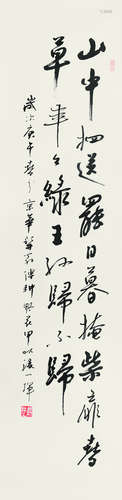 山中相送罷日暮掩柴扉春
草年々綠王孫歸不歸
歲次庚午春於京華